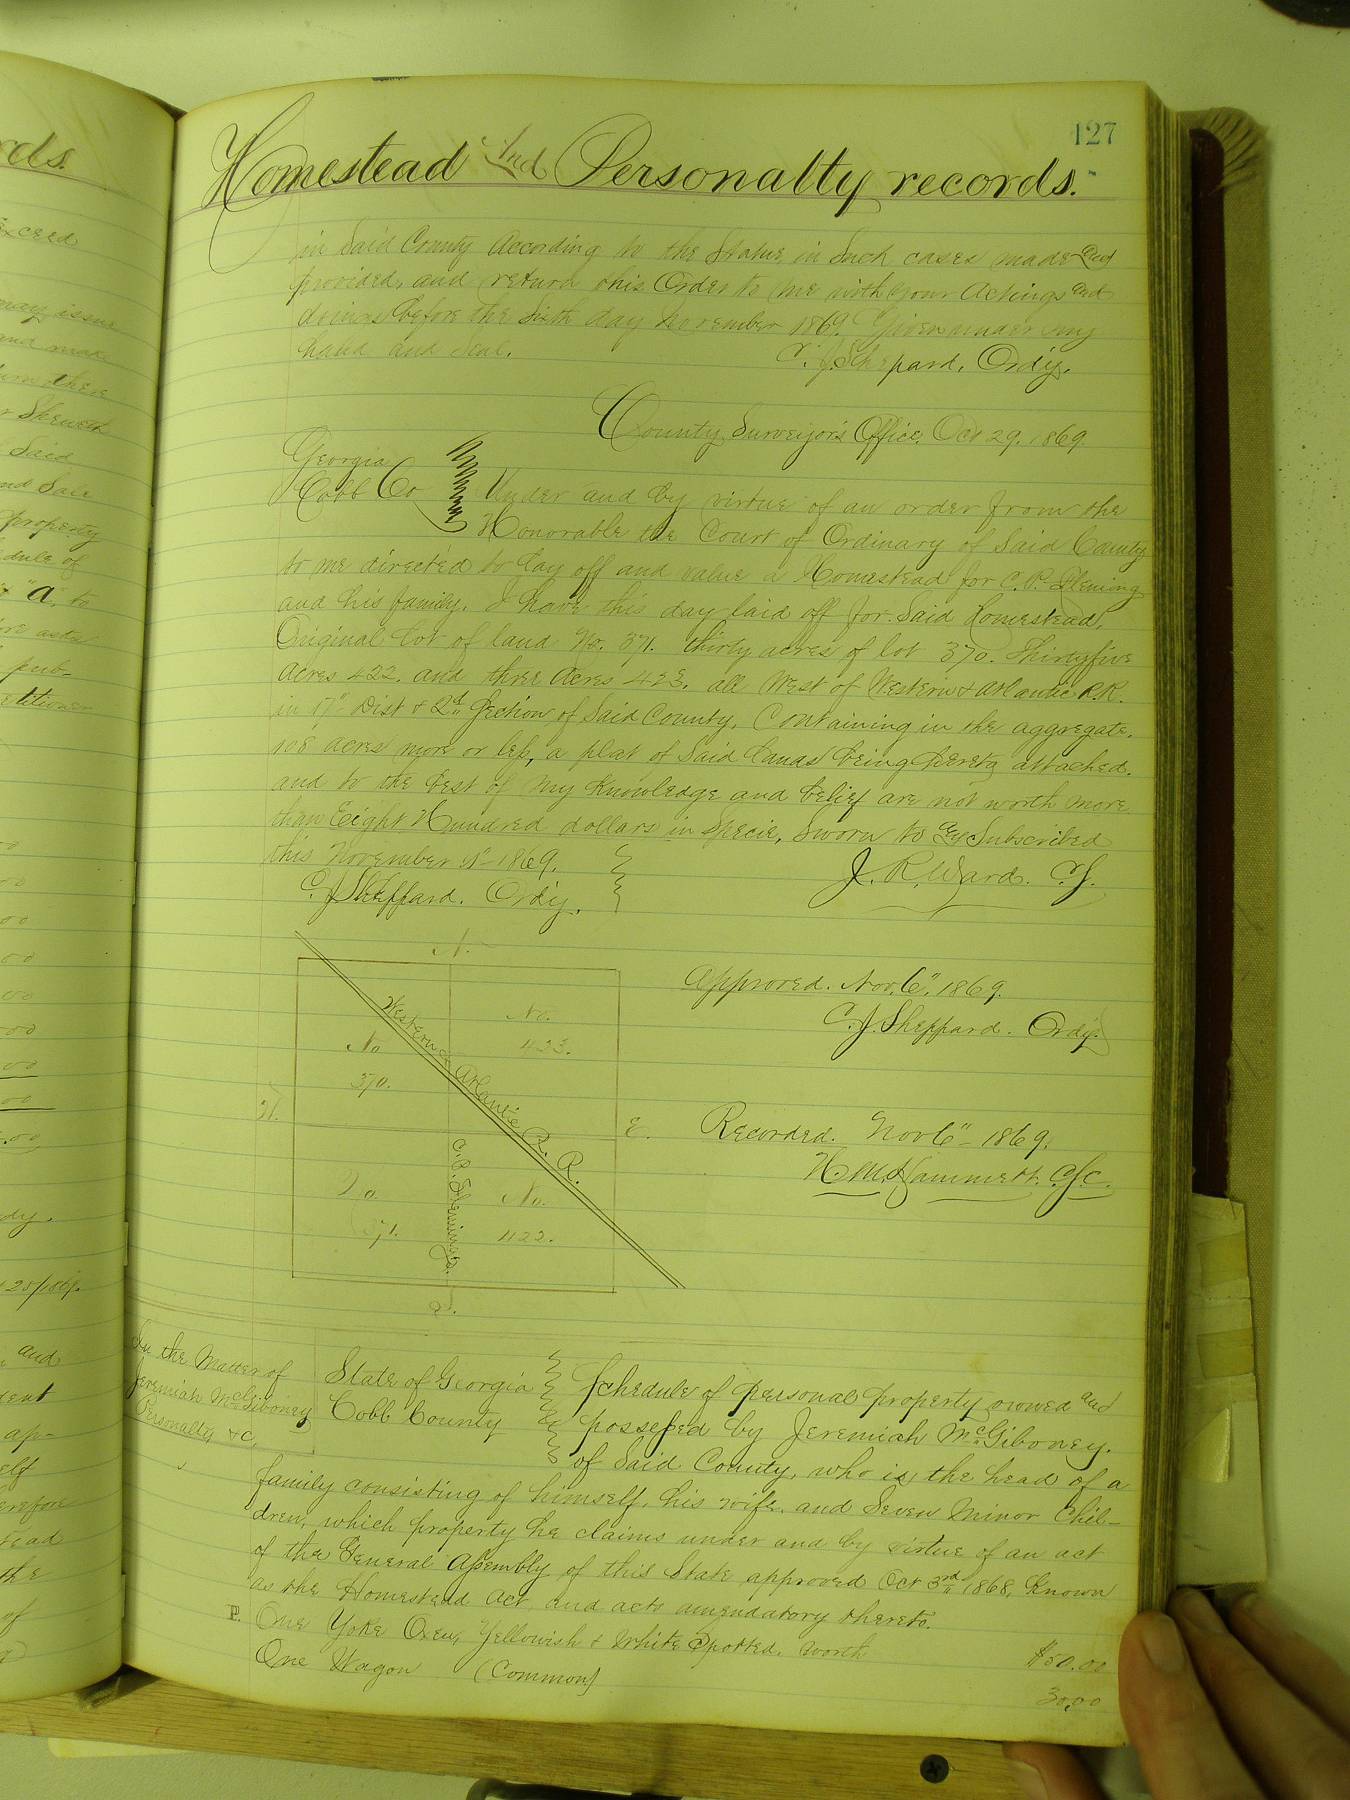 rds.
Exceed
may issue
and make
turn there
r Skewith
Said
and Sale
property
dule of
"a" to
pub-
etitioner
and
dent
ap-
elf
erefore
tead
the
of
127
Homestead And Personalty records.
in Said County According to the Statue in Such cases made and
provided, and return this Order to me with your Actings and
doings before the Sixth day November 1869. Given under my
hand and Seal. C. J. Shepard, Ordy.
County Surveyor's Office, Oct 29. 1869
Georgia
Cobb Co Under and by virtue of an order from the
Honorable the Court of Ordinary of Said County
to me directed to Lay off and value a Homestead for C. P. Fleming
and his family. I have this day laid off for Said Homestead,
Original Lot of land No. 371. thirty acres of lot 370. Thirtyfive
acres 422. and three Acres 423. all West of Western & Atlantic R.R.
in 17" Dist & 2d Section of Said County, Containing in the aggregate,
108 acres more or less, a plat of Said Lands being hereto attached.
and to the best of my Knowledge and belief are not worth more
than Eight Hundred dollars in Specie, Sworn to & Subscribed
this November 1st 1869. J. R. Ward. C.S.
C. J. Sheppard. Ordy.
N.
Western & Atlantic R. R.
No. 423.
No 370.
W.
E.
C. P. Fleming's.
No. 371.
No. 422.
S.
Approved. Nov. 6", 1869.
C. J. Sheppard. Ordy.
Recorded. Nov 6" 1869.
H. M. Hammett. C.S.C.
In the Matter of
Jeremiah McGiboney
Personalty &c,
State of Georgia
Cobb County
Schedule of personal property owned and
possessed by Jeremiah McGiboney.
of Said County, who is the head of a
family consisting of himself, his wife and Seven Minor Chil-
dren, which property he claims under and by virtue of an act
of the General Assembly of this State approved Oct 3rd 1868, Known
as the Homestead Act, and acts amendatory thereto.
P. One Yoke Oxen, Yellowish & White Spotted. worth $50.00
One Wagon (Common) 30.00